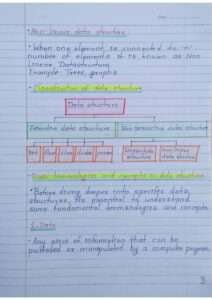 Non linear data structure
When one element is connected to n
number of elements it is known as Non
Linear Datastructure
Example: Trees, graphs
Classification of data structure
Data structure
Primitive data structure Non primitive data structure
Linear data structure Non linear data structure
Basic terminologies and concepts in data structure
Before diving deeper into specific data
structures, it's important to understand
some fundamental terminologies and concepts
1. Data
Any piece of information that can be
processed or manipulated by a computer program